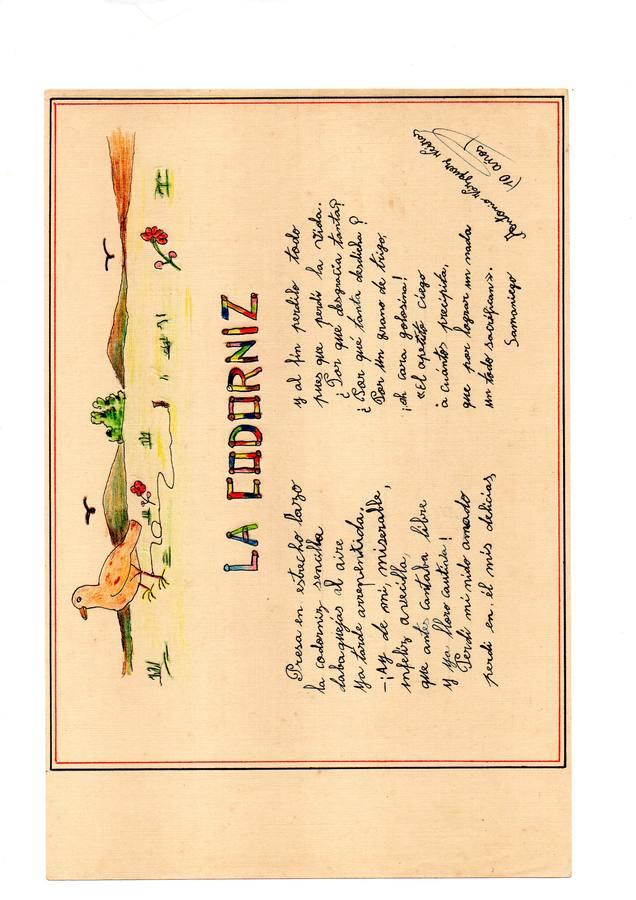 LA CODORNIZ
Presa en estrecho lazo
la codorniz sencilla
daba quejas al aire
ya tarde arrepentida.
-¡Ay de mi, miserable,
infeliz avecilla,
que antes cantaba libre
y ya lloro cautiva!
Perdí mi nido amado
perdí en él mis delicias
y al fin perdilo todo
pues que perdí la vida.
¿Por que desgracia tanta?
¿Por qué tanta desdicha?
Por un grano de trigo.
¡oh cara golosina!
«El apetito ciego
a cuántos precipita,
que por lograr un nada
un todo sacrifican».
Samaniego
Antonio
(10 años)